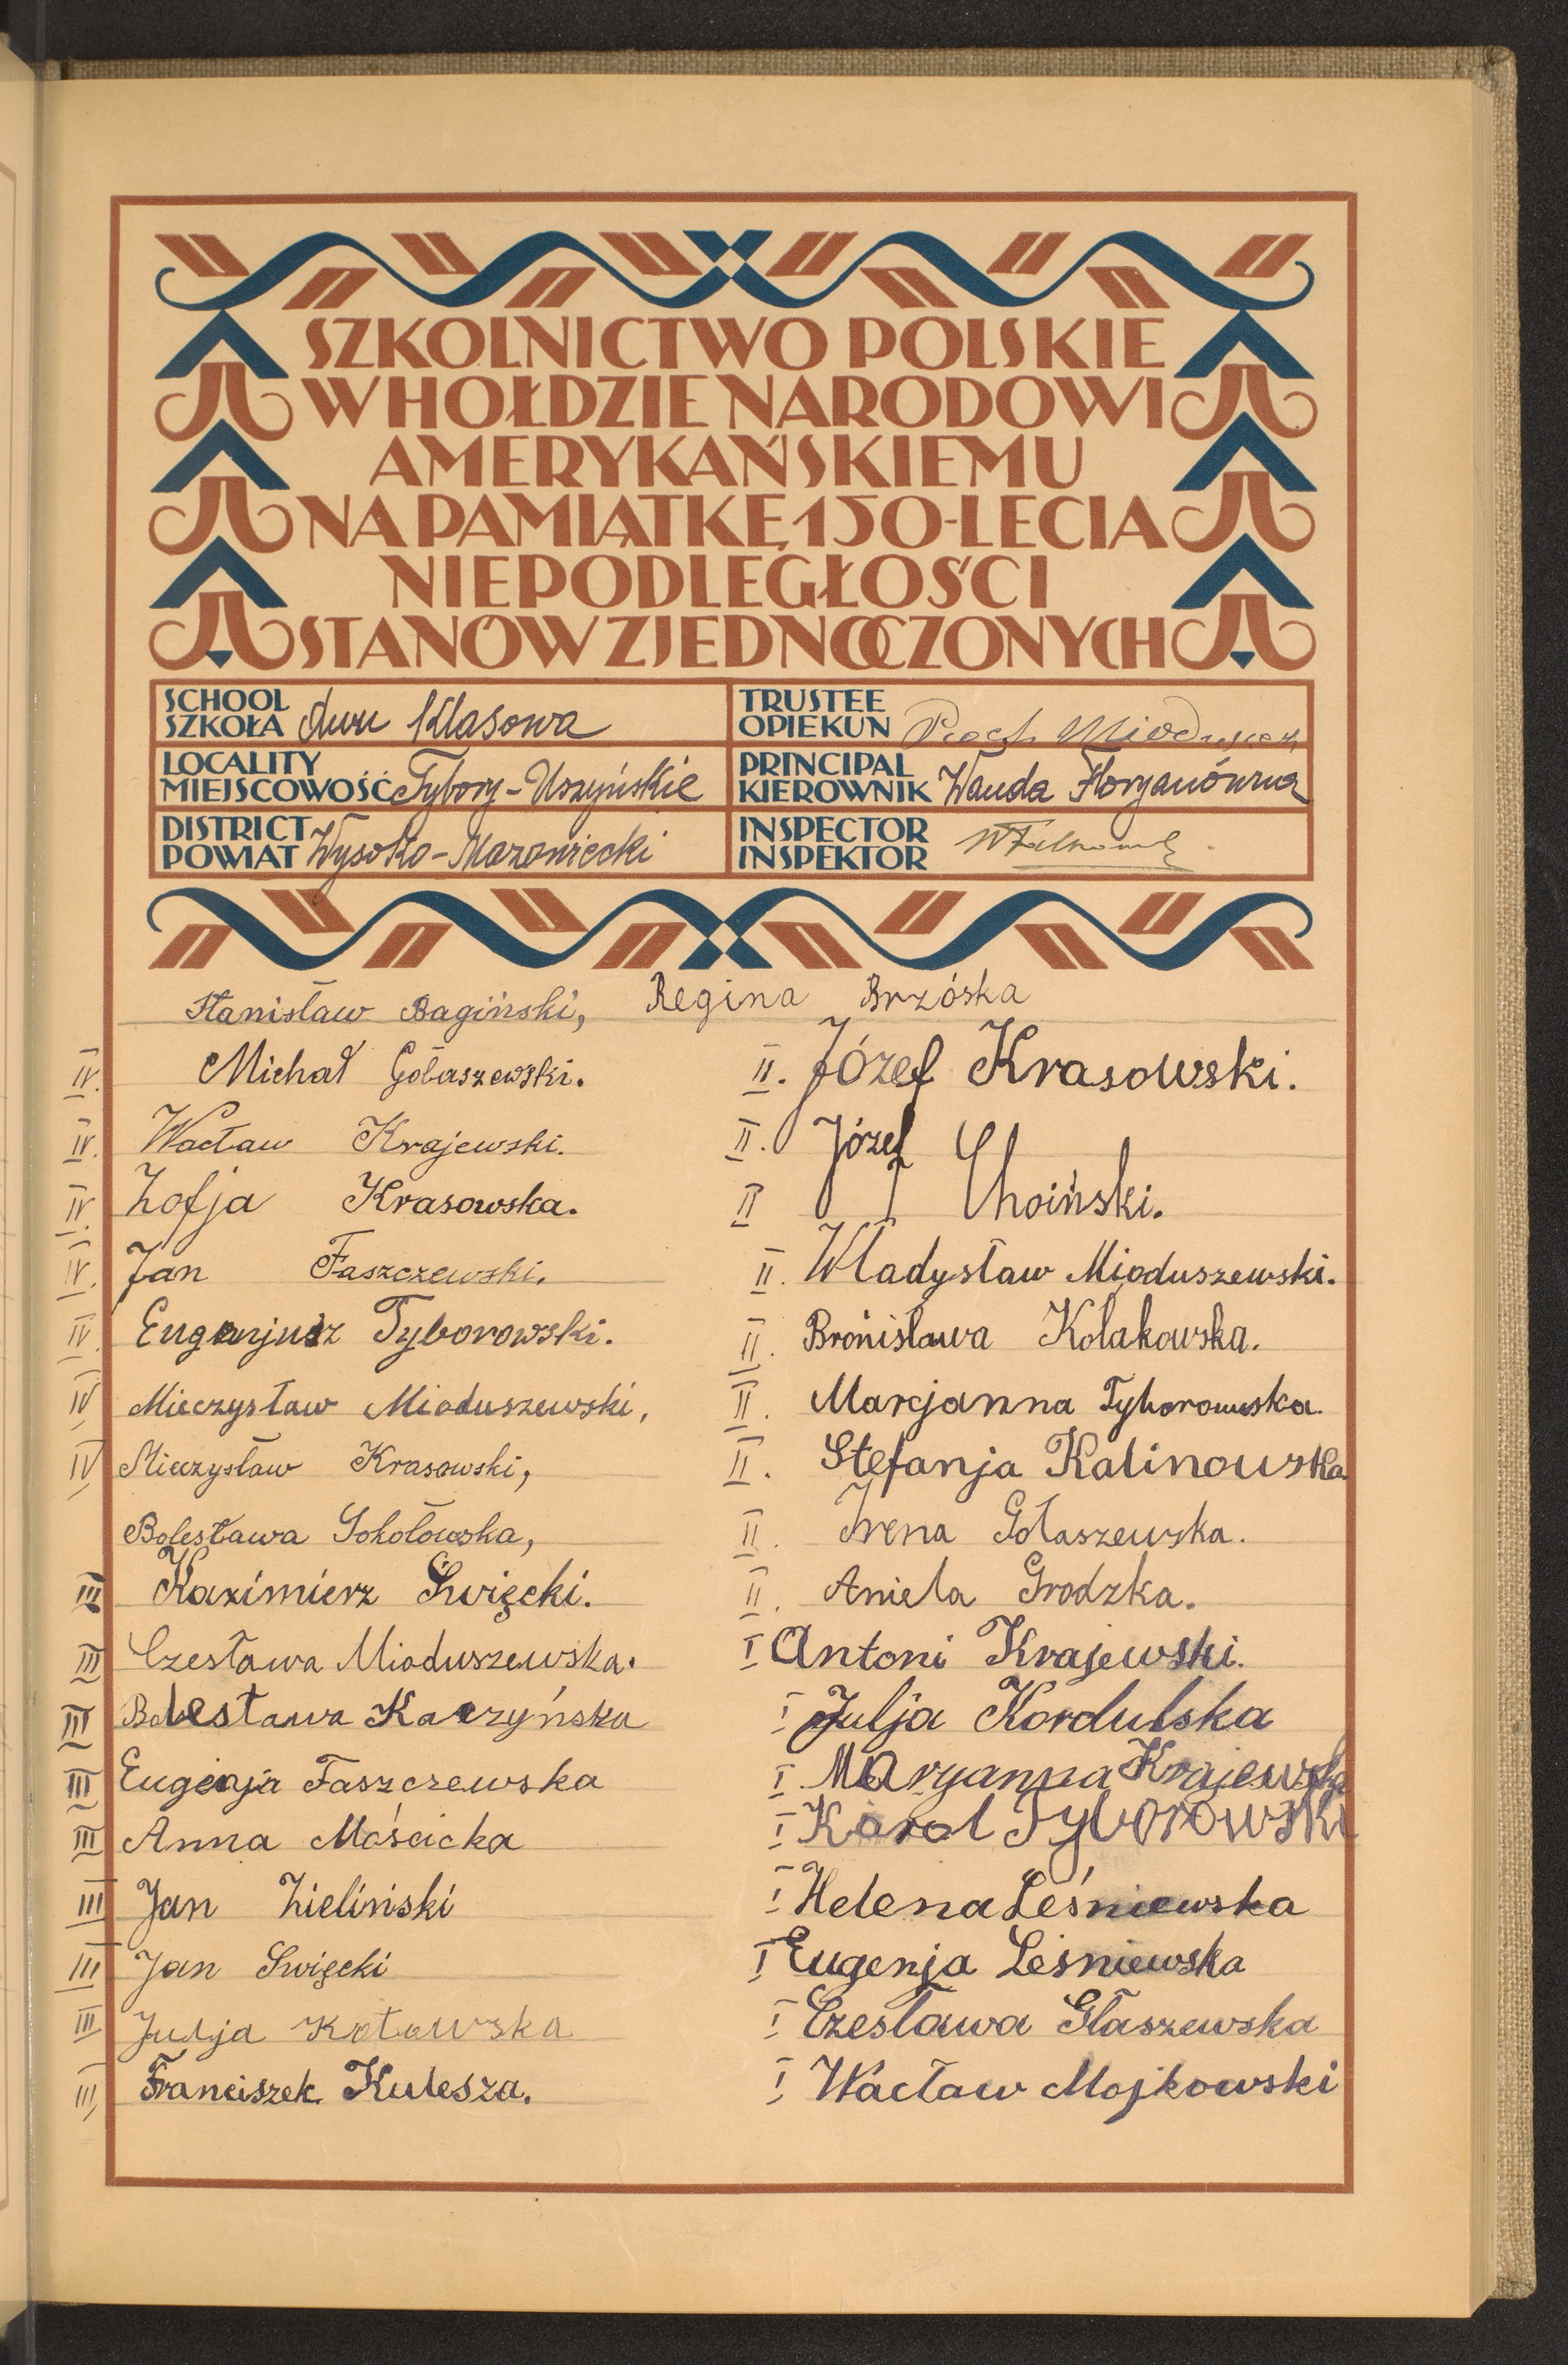 SZKOLNICTWO POLSKIE
W HOŁDZIE NARODOWI
AMERYKAŃSKIEMU
NA PAMIĄTKĘ 150-LECIA
NIEPODLEGŁOŚCI
STANÓW ZJEDNOCZONYCH
SCHOOL
SZKOŁA dwu Klasowa
TRUSTEE
OPIEKUN
LOCALITY
MIEJSCOWOŚĆ Tybory-Uszyńskie
PRINCIPAL
KIEROWNIK Wanda Floryanówna
DISTRICT
POWIAT Wysoko-Mazowiecki
INSPECTOR
INSPEKTOR
Stanisław Bagiński, Regina Brzóska
IV. Michał Gołaszewski.
IV. Wacław Krajewski.
IV. Zofja Krasowska.
IV. Jan Faszczewski.
IV. Eugenjusz Tyborowski.
IV Mieczysław Mioduszewski,
IV Mieczysław Krasowski,
Bolesława Sokołowska,
III Kazimierz Święcki.
III Czesława Mioduszewska.
III Bolesława Kaczyńska
III Eugenja Faszczewska
III Anna Mościcka
III Jan Zieliński
III Jan Swięcki
III Julja Kotowska
III, Franciszek Kulesza.
II. Józef Krasowski.
II. Józef
II Choiński.
II. Władysław Mioduszewski.
II. Bronisława Kołakowska.
II. Marcjanna Tyborowska.
II. Stefanja Kalinowska
II. Irena Gołaszewska.
II. Aniela Grodzka.
I Antoni Krajewski.
I Julja Kordulska
I Maryanna Krajewska
I Karol Tyborowski
I Helena Leśniewska
I Eugenja Leśniewska
I Czesława Głaszewska
I, Wacław Mojkowski